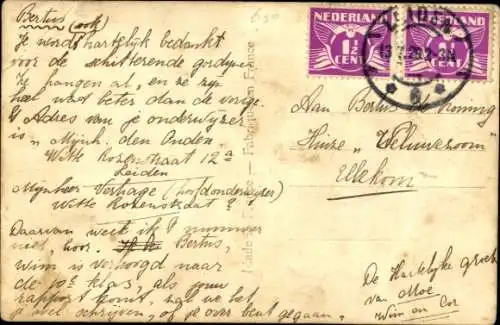 Bertus (ook)
Je wordt hartelijk bedankt
voor de schitterende gordijnen
Ze hangen al, en ze zijn
heel wat beter dan de vorige.
't Adres van je onderwijzer
is "Mijnh. den Ouden.
Witte Rozenstraat 12a
Leiden
Mijnheer Verhage (hoofdonderwijzer)
Witte Rozenstraat ?
Daarvan weet ik 't nummer
niet, hoor. Bertus,
Wim is verhoogd naar
de klas, als jouw
rapport komt, zal je het
wel schrijven, of je over bent gegaan.
Made in France - Fabriqué en France
NEDERLAND
1½
CENT
NEDERLAND
CENT
LEIDEN
Aan Bertus de Koning
Huize "Veluwezoom
Ellekom
De Hartelijke groeten
van Moe
Wim en Cor